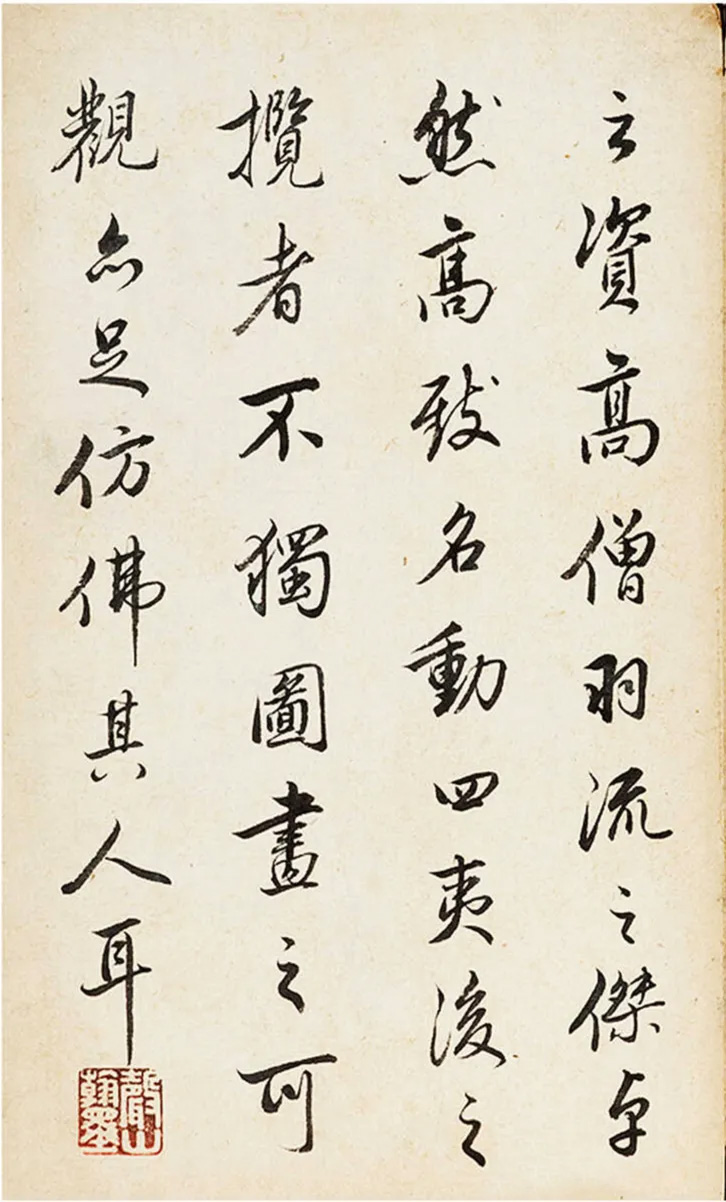 之資高僧羽流之傑卓
然高致名動四夷後之
攬者不獨圖畫之可
觀亦足仿佛其人耳
聲山
翰墨